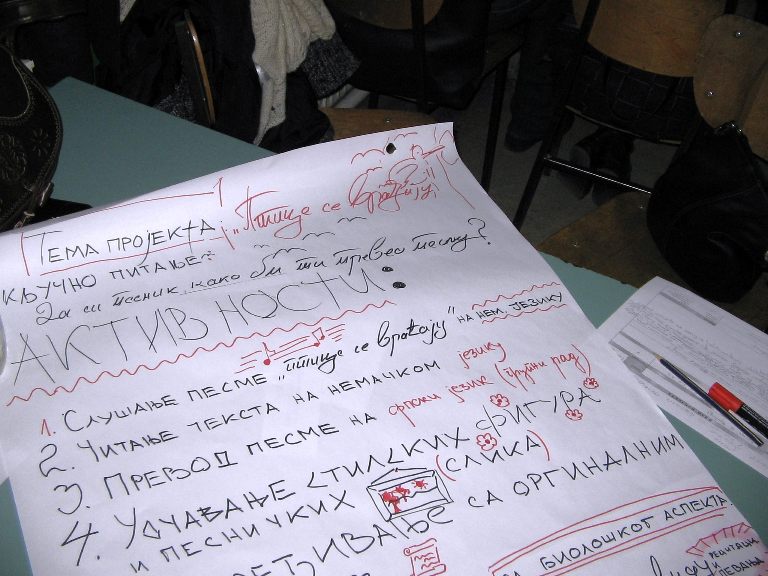 Тема пројекта: „Птице се враћају"
Кључно питање:
Да си песник, како би ти превео песму?
АКТИВНОСТИ:
1. Слушање песме „Птице се враћају" на нем. језику
2. Читање текста на немачком језику
3. Превод песме на српски језик (групни рад)
4. Уочавање стилских фигура
и песничких (слика)
са оргиналним
са биолошког аспекта
рецитација
и
певања